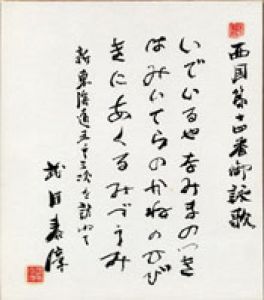 西国第十四番御詠歌
いでいるやなみまのつき
はみいてらのかねのひび
きにあくるみづうみ
新東海道五十三次を訪ねて
武田泰淳